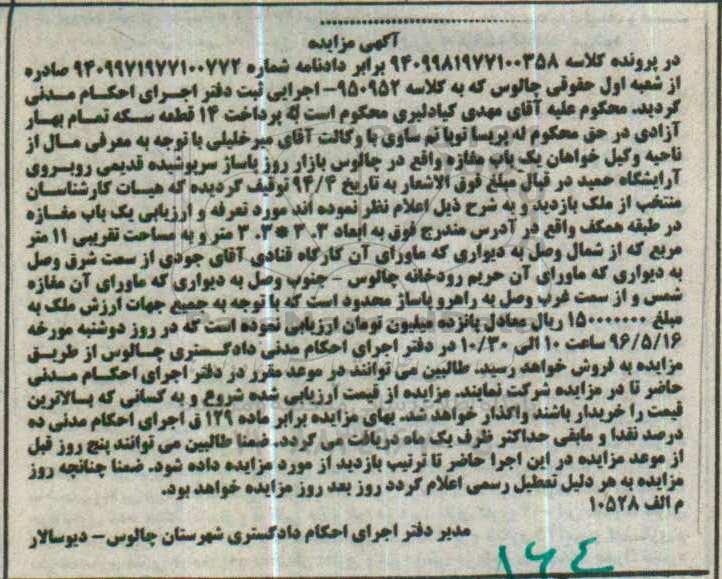 آگهی مزایده
در پرونده کلاسه ۹۴۰۹۹۸۱۹۷۷۱۰۰۳۵۸ برابر دادنامه شماره ۹۴۰۹۹۷۱۹۷۷۱۰۰۷۷۲ صادره
از شعبه اول حقوقی چالوس که به کلاسه ۹۵۰۹۵۲- اجرایی ثبت دفتر اجرای احکام مدنی
گردید. محکوم علیه آقای مهدی کیادلیری محکوم است به پرداخت ۱۴ قطعه سکه تمام بهار
آزادی در حق محکوم له پریسا توپا تم ساوی با وکالت آقای میرخلیلی با توجه به معرفی مال از
ناحیه وکیل خواهان یک باب مغازه واقع در چالوس بازار روز پاساژ سرپوشیده قدیمی روبروی
آرایشگاه حمید در قبال مبلغ فوق الاشعار به تاریخ ۹۴/۴ توقیف گردیده که هیات کارشناسان
منتخب از ملک بازدید و به شرح ذیل اعلام نظر نموده اند مورد تعرفه و ارزیابی یک باب مغازه
در طبقه همکف واقع در آدرس مندرج فوق به ابعاد ۳.۳*۳.۳ متر و به مساحت تقریبی ۱۱ متر
مربع که از شمال وصل به دیواری که ماورای آن کارگاه قنادی آقای جودی از سمت شرق وصل
به دیواری که ماورای آن حریم رودخانه چالوس - جنوب وصل به دیواری که ماورای آن مغازه
شمس و از سمت غرب وصل به راهرو پاساژ محدود است که با توجه به جمیع جهات ارزش ملک به
مبلغ ۱۵۰۰۰۰۰۰۰ ریال معادل پانزده میلیون تومان ارزیابی نموده است که در روز دوشنبه مورخه
۹۶/۵/۱۶ ساعت ۱۰ الی ۱۰/۳۰ در دفتر اجرای احکام مدنی دادگستری چالوس از طریق
مزایده به فروش خواهد رسید. طالبین می توانند در موعد مقرر در دفتر اجرای احکام مدنی
حاضر تا در مزایده شرکت نمایند. مزایده از قیمت ارزیابی شده شروع و به کسانی که بالاترین
قیمت را خریدار باشند واگذار خواهد شد. بهای مزایده برابر ماده ۱۲۹ ق اجرای احکام مدنی ده
درصد نقدا و مابقی حداکثر ظرف یک ماه دریافت می گردد. ضمنا طالبین می توانند پنج روز قبل
از موعد مزایده در این اجرا حاضر تا ترتیب بازدید از مورد مزایده داده شود. ضمنا چنانچه روز
مزایده به هر دلیل تعطیل رسمی اعلام گردد روز بعد روز مزایده خواهد بود.
م الف ۱۰۵۲۸
مدیر دفتر اجرای احکام دادگستری شهرستان چالوس - دیوسالار
۱۶۴